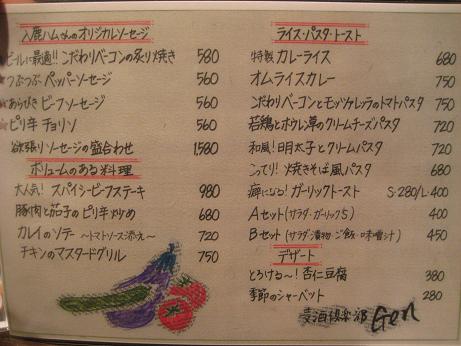 入鹿ハムさんのオリジナルソーセージ
ビールに最適!! こだわりベーコンの炙り焼き 580
つぶつぶ ペッパーソーセージ 560
あらびき ビーフソーセージ 560
ピリ辛 チョリソ 560
欲張りソーセージの盛合わせ 1,580
ボリュームのある料理
大人気! スパイシービーフステーキ 980
豚肉と茄子のピリ辛炒め 680
カレイのソテー 〜トマトソース添え〜 720
チキンのマスタードグリル 750
ライス・パスタ・トースト
特製 カレーライス 680
オムライスカレー 750
こだわりベーコンとモッツァレラのトマトパスタ 750
若鶏とホウレン草のクリームチーズパスタ 720
和風! 明太子とクリームパスタ 720
こってり! 焼きそば風パスタ 680
癖になる! ガーリックトースト S:280/L:400
Aセット(サラダ・ガーリック5) 400
Bセット(サラダ・漬物・ご飯・味噌汁) 450
デザート
とろける〜! 杏仁豆腐 380
季節のシャーベット 280
麦酒倶楽部 Gen